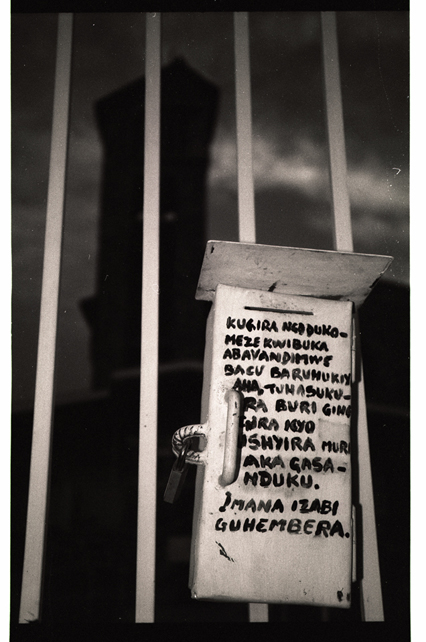 KUGIRA NGO DUKO-
MEZE KWIBUKA
ABAVANDIMWE
BACU BARUHUKIY
AHA, TUHASUKU-
RA BURI GIHE
KYO
SHYIRA MURI
AKA GASA-
NDUKU.
IMANA IZABI
GUHEMBERA.